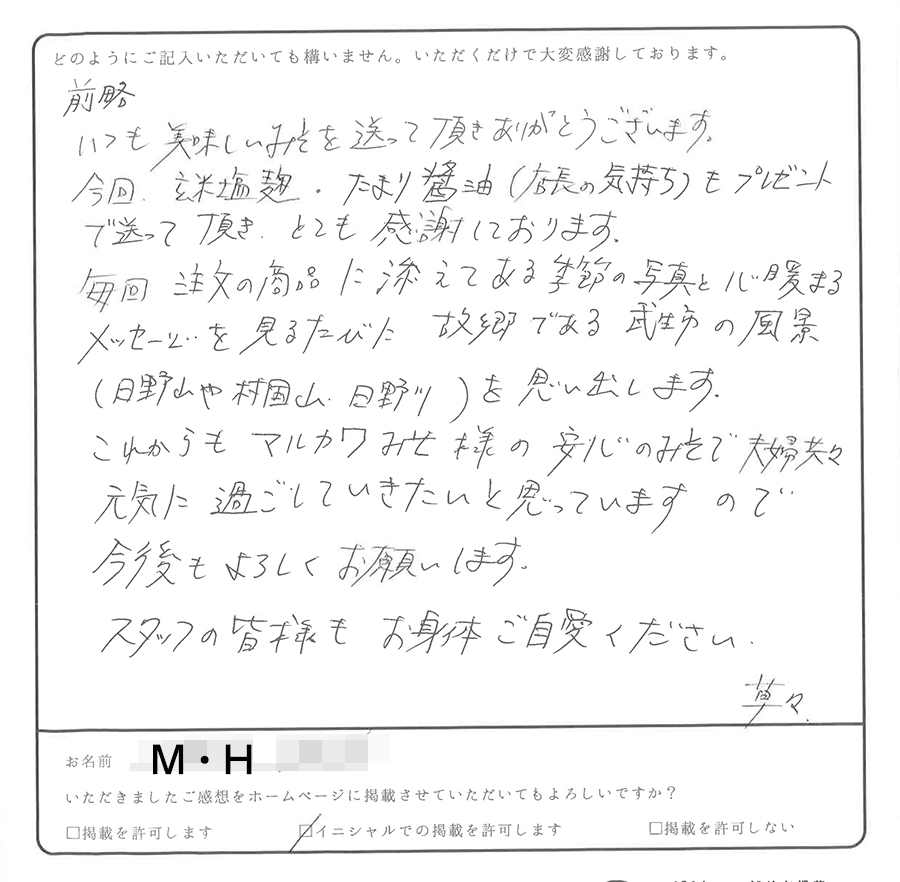 どのようにご記入いただいても構いません。いただくだけで大変感謝しております。
前略
いつも 美味しいみそを送って頂きありがとうございます。
今回、玄米塩麹・たまり醤油(店長の気持ち)もプレゼント
で送って頂き、とても感謝しております。
毎回 注文の商品に添えてある季節の写真と心暖まる
メッセージを見るたびに 故郷である 武生市の風景
(日野山や村国山、日野川)を思い出します。
これからもマルカワみそ様の安心のみそで夫婦共々
元気に過ごしていきたいと思っていますので
今後もよろしくお願いします。
スタッフの皆様も お身体ご自愛ください。
草々
お名前 M・H
いただきましたご感想をホームページに掲載させていただいてもよろしいですか?
□掲載を許可します □イニシャルでの掲載を許可します □掲載を許可しない